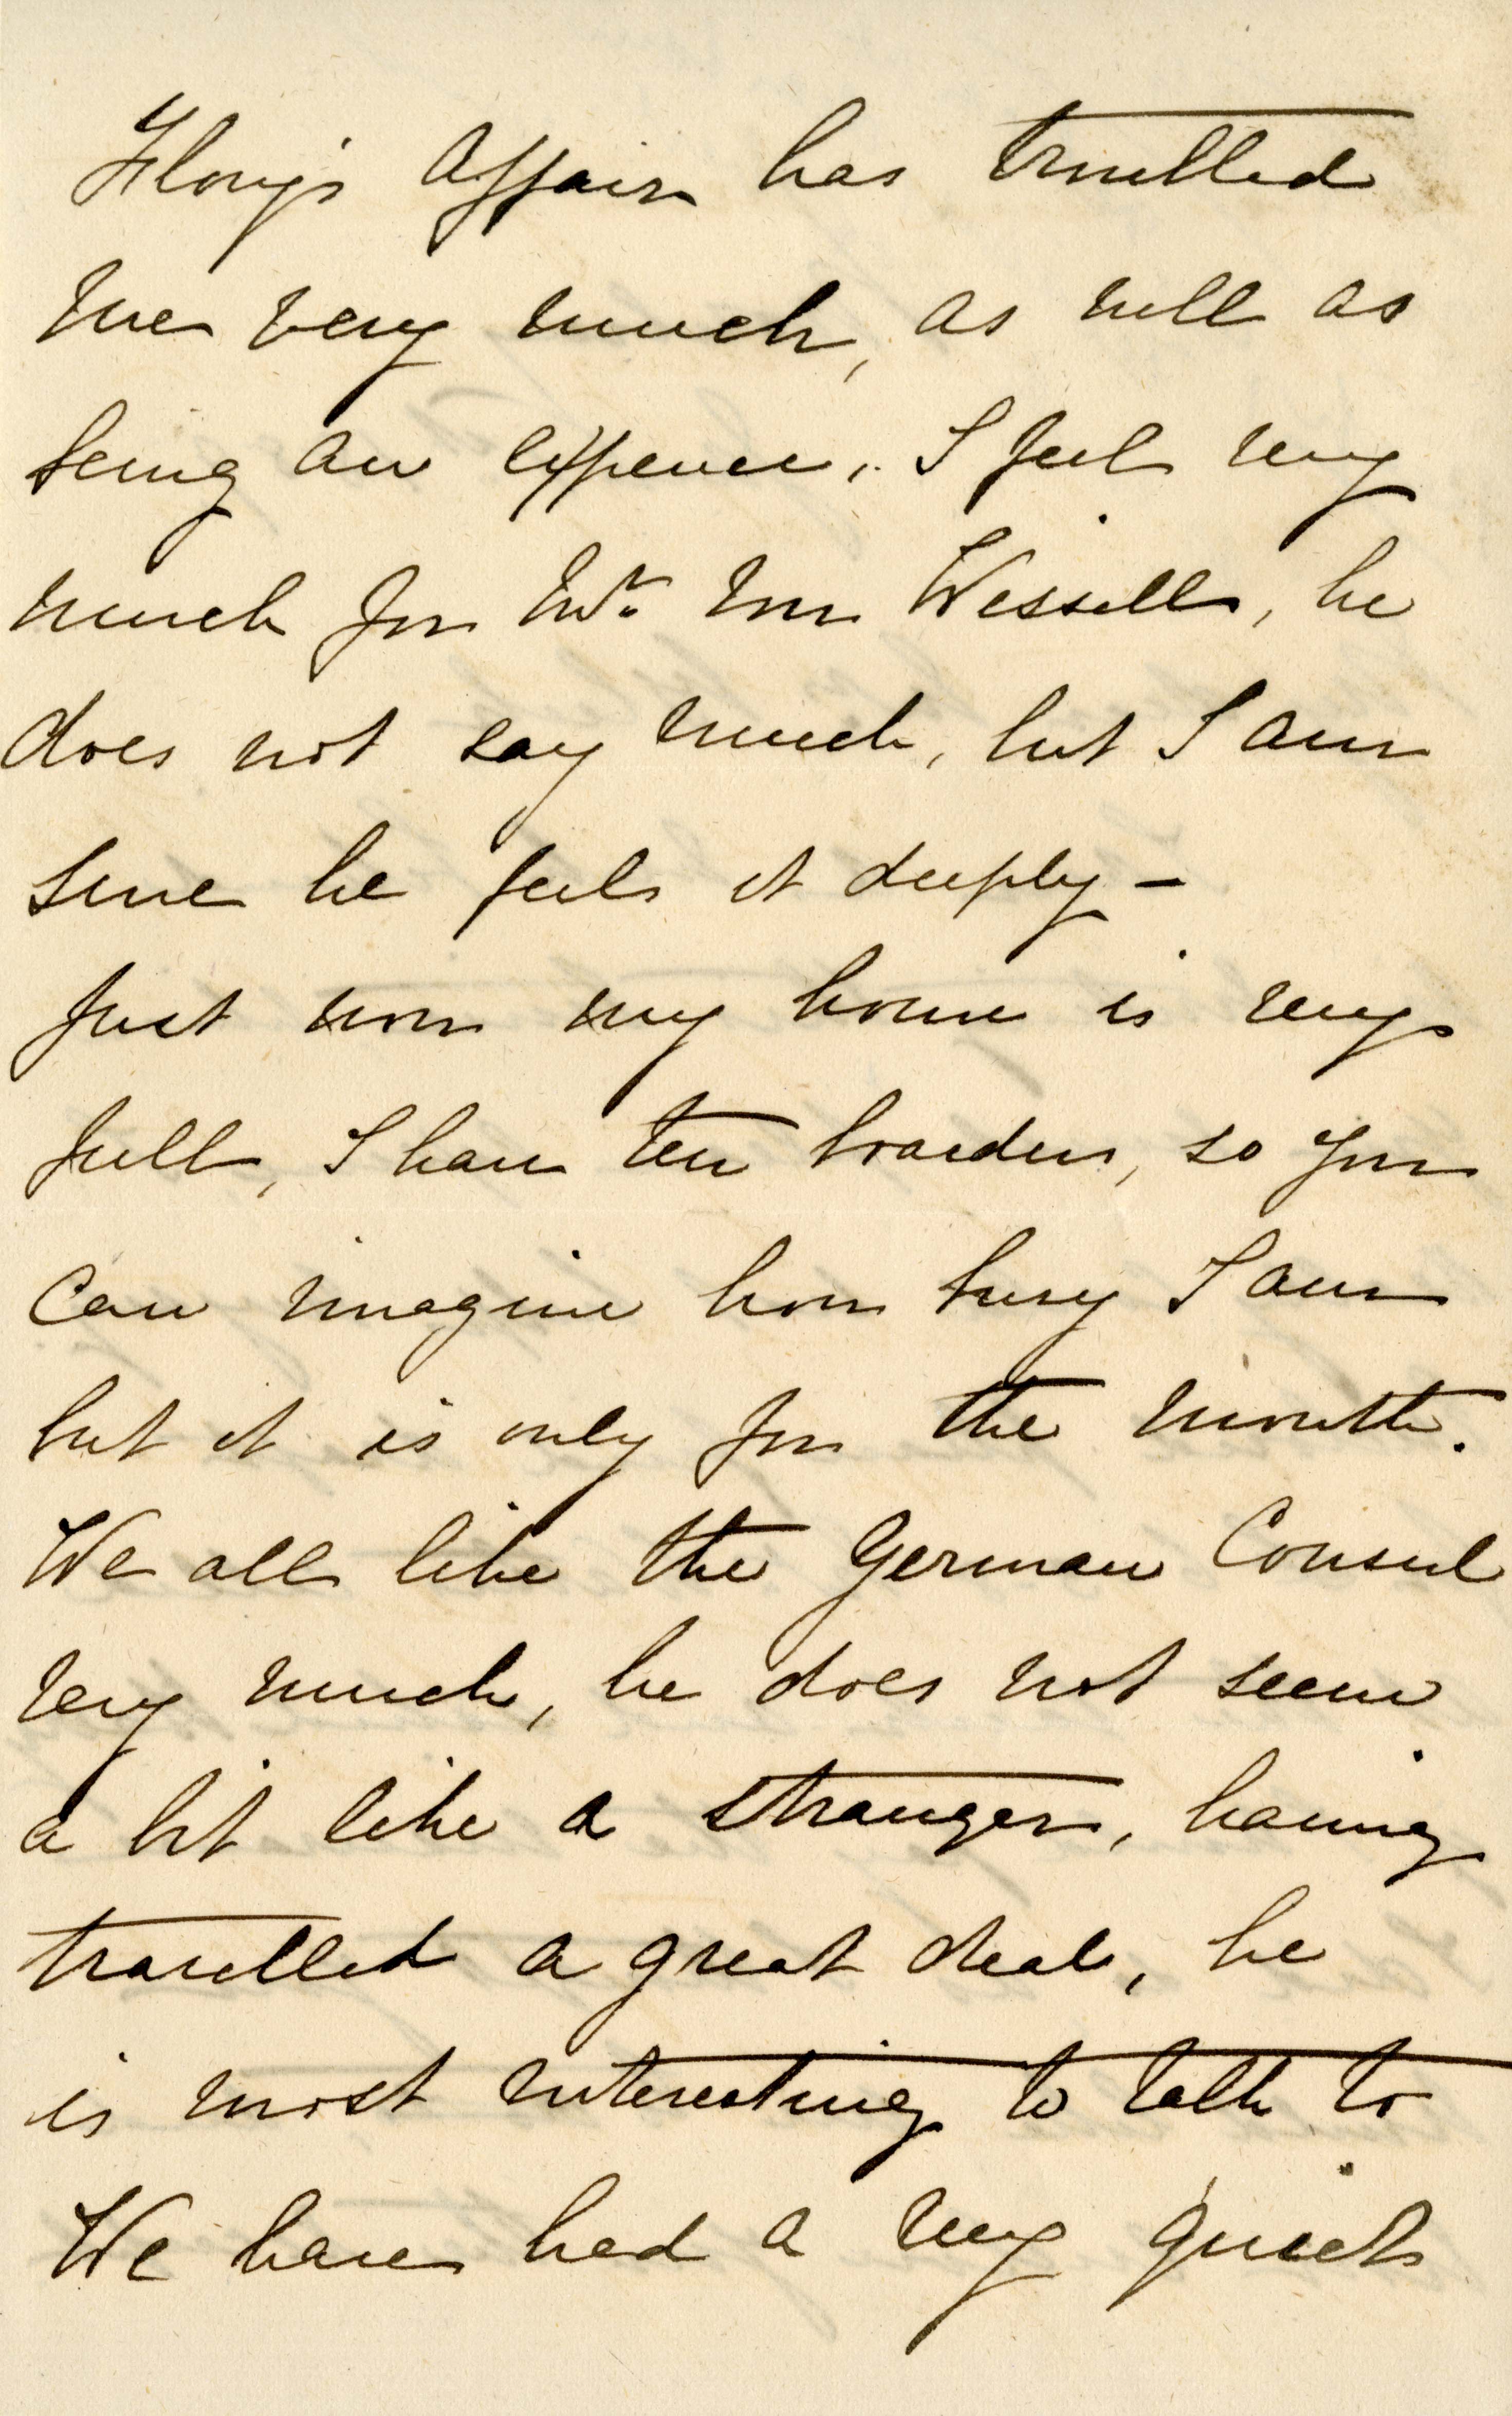 Flory's affair has troubled
me very much, as well as
being an expence, I feel very
much for Mr. Von Wessell, he
does not say much, but I am
sure he feels it deeply —
Just now my house is very
full, I have ten boarders, so you
can imagine how busy I am
but it is only for the month.
We all like the German Consul
very much, he does not seem
a bit like a stranger, having
travelled a great deal, he
is most interesting to talk to
We have had a very quiet